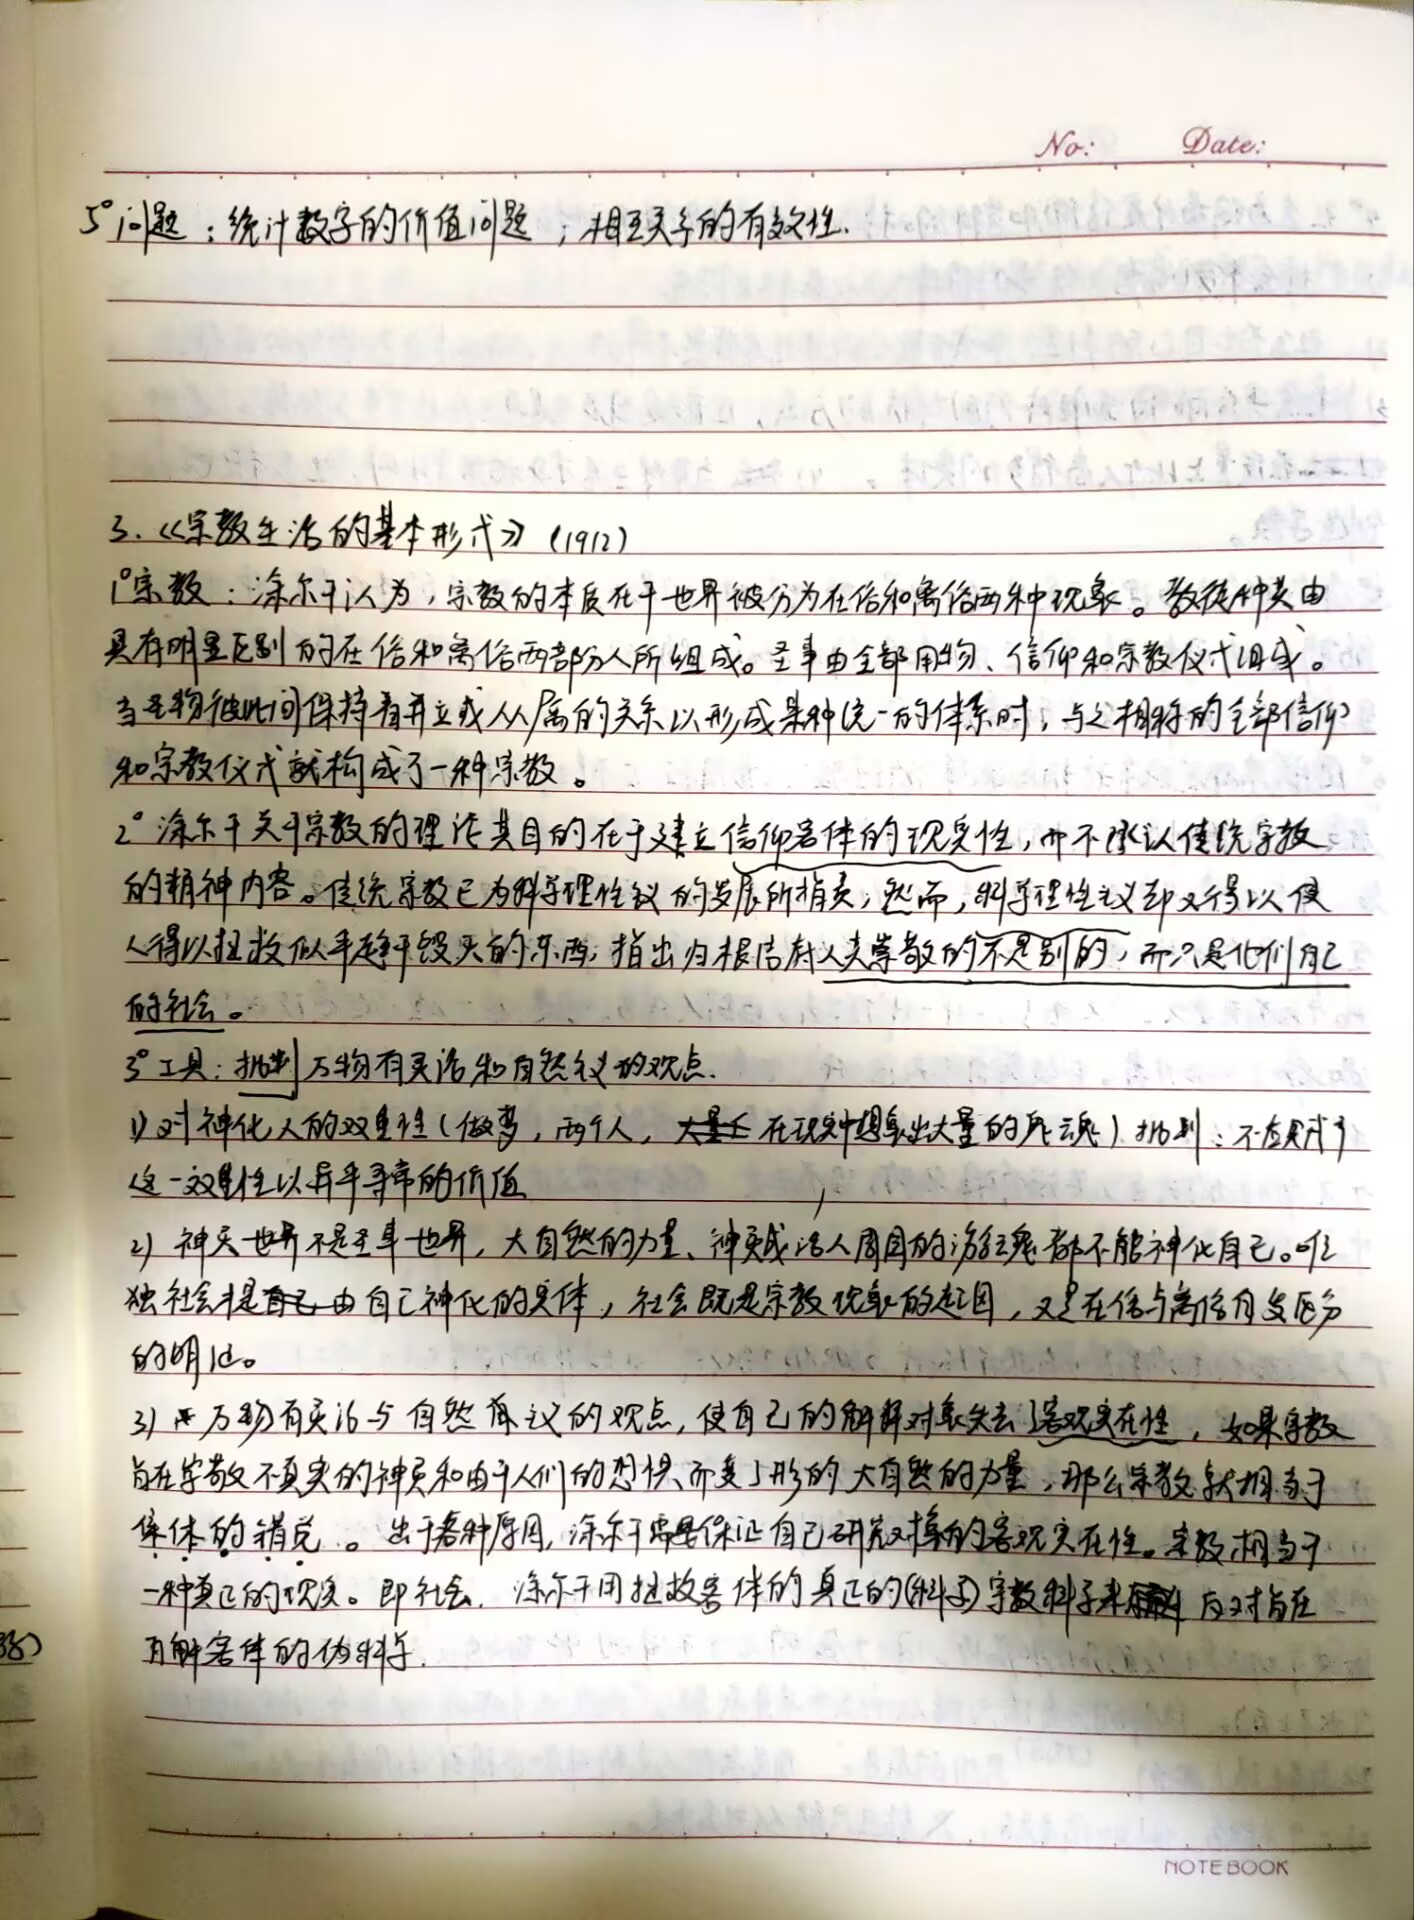 No: Date:
5° 问题：统计数字的价值问题；相互关系的有效性.
3.《宗教生活的基本形式》（1912）
1° 宗教：涂尔干认为，宗教的本质在于世界被分为在俗和离俗两种现象。教徒种类由
具有明显区别的在俗和离俗两部分人所组成。圣事由全部用物、信仰和宗教仪式组成。
当圣物彼此间保持着并立或从属的关系以形成某种统一的体系时，与之相称的全部信仰
和宗教仪式就构成了一种宗教。
2° 涂尔干关于宗教的理论其目的在于建立信仰客体的现实性，而不承认传统宗教
的精神内容。传统宗教已为科学理性主义的发展所指责；然而，科学理性主义却又得以使
人得以拯救似乎趋于毁灭的东西，指出归根结底人类崇敬的不是别的，而只是他们自己
的社会。
3° 工具：批判万物有灵论和自然主义的观点.
1) 对神化人的双重性（做梦，两个人，在现实中想象出大量的死魂）批判：不应赋予
这一双重性以异乎寻常的价值
2) 神灵世界不是圣事世界，大自然的力量、神灵或活人周围的游都不能神化自己。唯
独社会才是由自己神化的实体，社会既是宗教现象的起因，又是在俗与离俗自发区分
的明证。
3) 万物有灵论与自然主义的观点，使自己的解释对象失去了客观实在性，如果宗教
旨在崇敬不真实的神灵和由于人们的恐惧而变了形的大自然的力量，那么宗教就相当于
集体的错觉。出于各种原因，涂尔干需要保证自己研究对象的客观实在性。宗教相当于
一种真正的现实。即社会. 涂尔干用拯救客体的真正的(科学)宗教科学来反对旨在
瓦解客体的伪科学.
NOTEBOOK